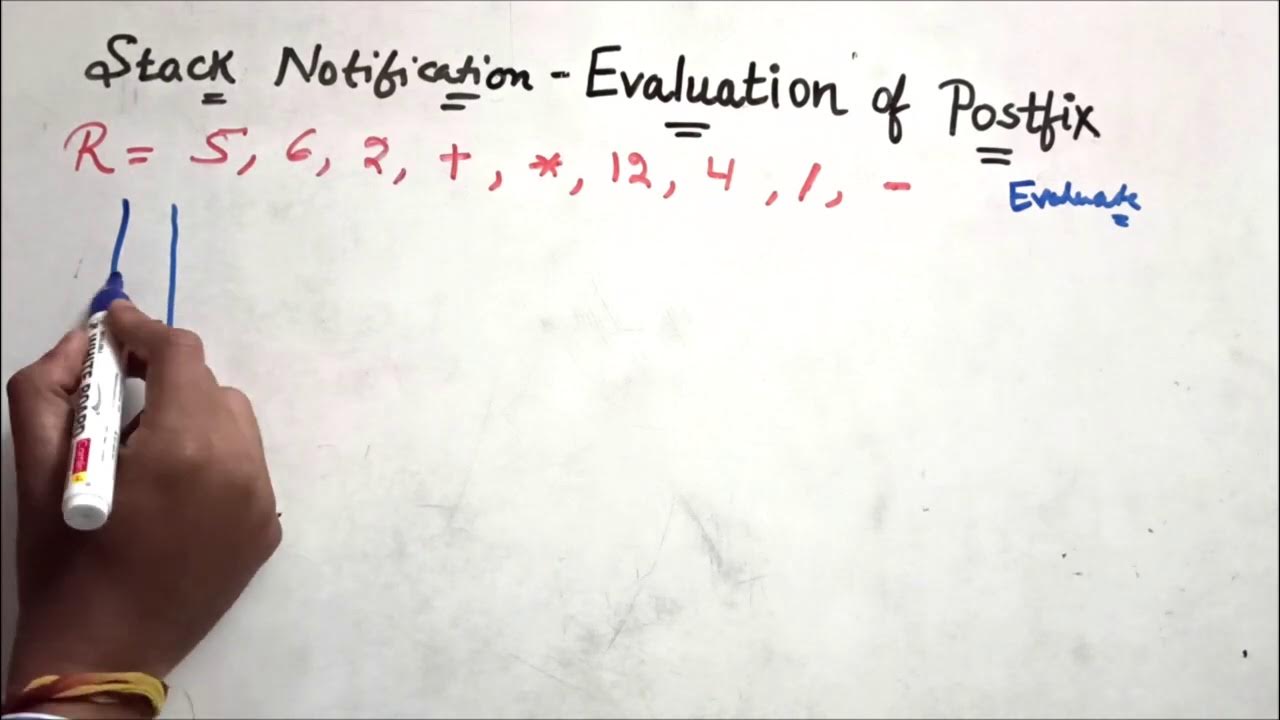 Stack Notification - Evaluation of Postfix
R = 5, 6, 2, +, *, 12, 4, /, -
Evaluate
WHITE BOARD